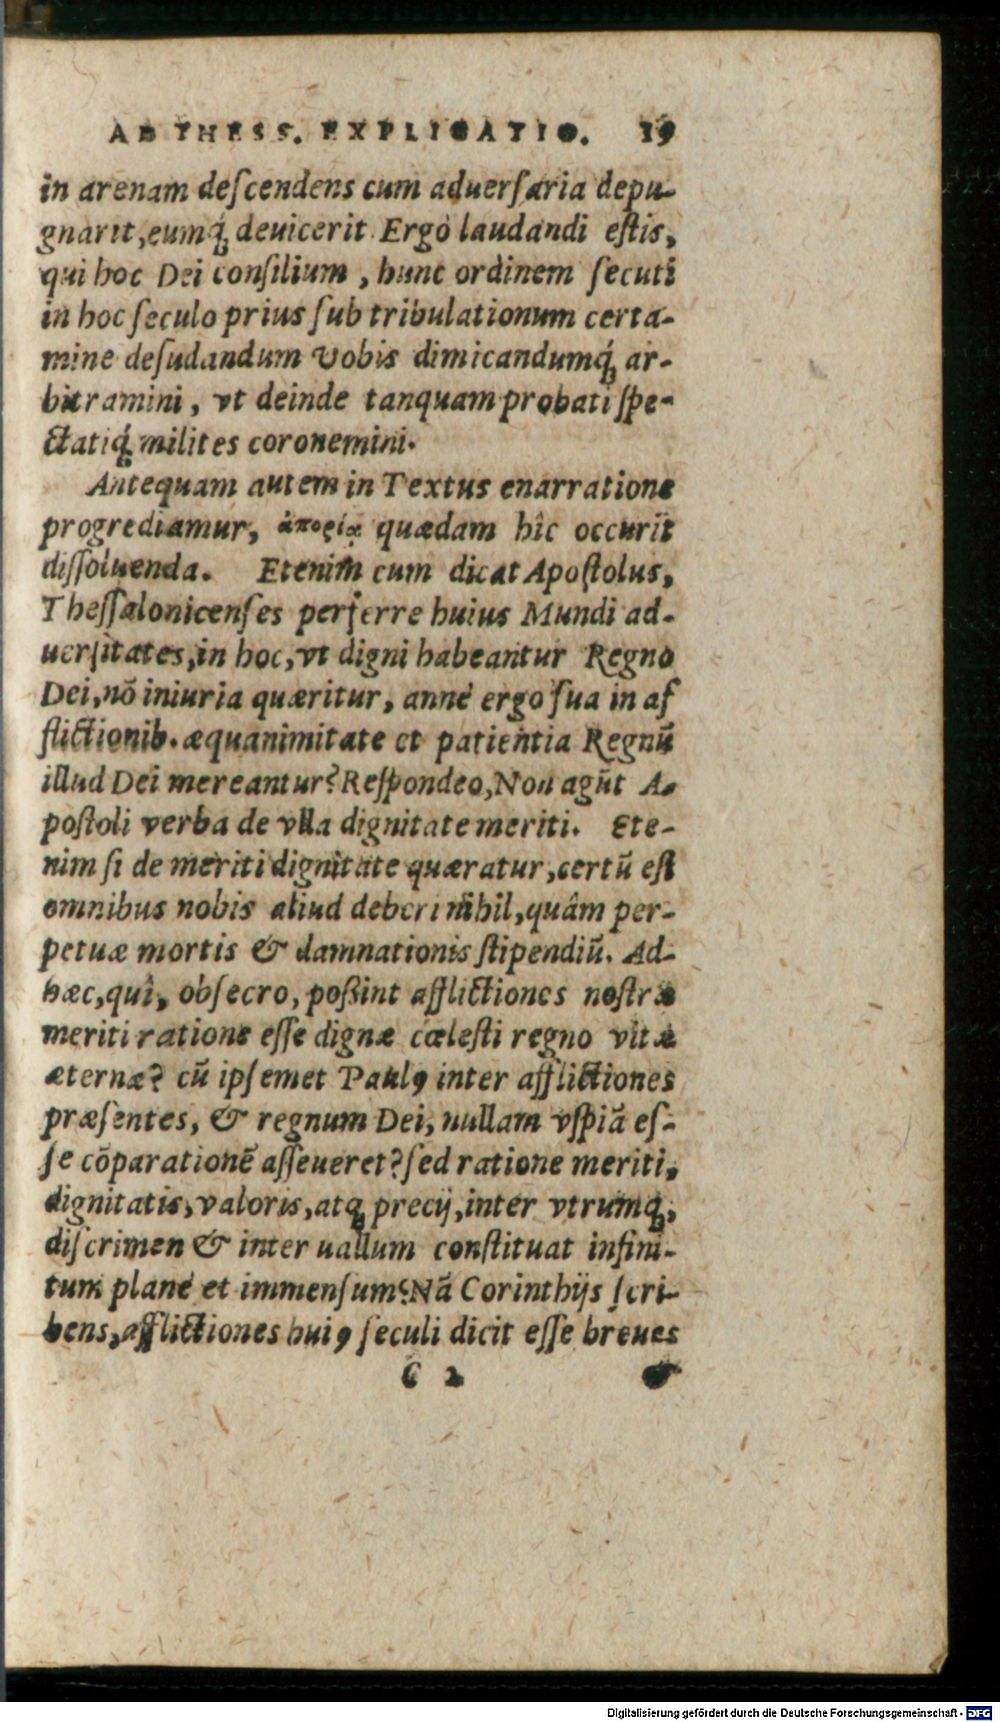 AD THESS. EXPLICATIO. 19
in arenam deſcendens cum aduerſaria depu-
gnarit,eumq́; deuicerit. Ergò laudandi eſtis,
qui hoc Dei conſilium, hunc ordinem ſecuti
in hoc ſeculo prius ſub tribulationum certa-
mine deſudandum vobis dimicandumq́; ar-
bitramini, vt deinde tanquam probati ſpe-
ctatiq́; milites coronemini.
Antequam autem in Textus enarratione
progrediamur, ἀπορία quædam hîc occurit
diſſoluenda. Etenim cum dicat Apoſtolus,
Theſſalonicenſes perferre huius Mundi ad-
uerſitates,in hoc,vt digni habeantur Regno
Dei,nō iniuria quæritur, anné ergo ſua in af
flictionib. æquanimitate et patientia Regnū
illud Dei mereantur? Reſpondeo,Non agūt A-
poſtoli verba de vlla dignitate meriti. Ete-
nim ſi de meriti dignitate quæratur,certū eſt
omnibus nobis aliud deberi nihil,quâm per-
petuæ mortis & damnationis ſtipendiū. Ad-
hæc,quî, obſecro, poßint afflictiones noſtræ
meriti ratione eſſe dignæ cœleſti regno vitæ
æternæ? cū ipſemet Paulꝰ inter afflictiones
præſentes, & regnum Dei, nullam vſpiā eſ-
ſe cōparationē aſſeueret? ſed ratione meriti,
dignitatis,valoris,atq; precij,inter vtrumq;,
diſcrimen & inter uallum conſtituat infini-
tum plané et immenſum? Nā Corinthijs ſcri-
bens,afflictiones huiꝰ ſeculi dicit eſſe breues
C 2 &
Digitalisierung gefördert durch die Deutsche Forschungsgemeinschaft - DFG